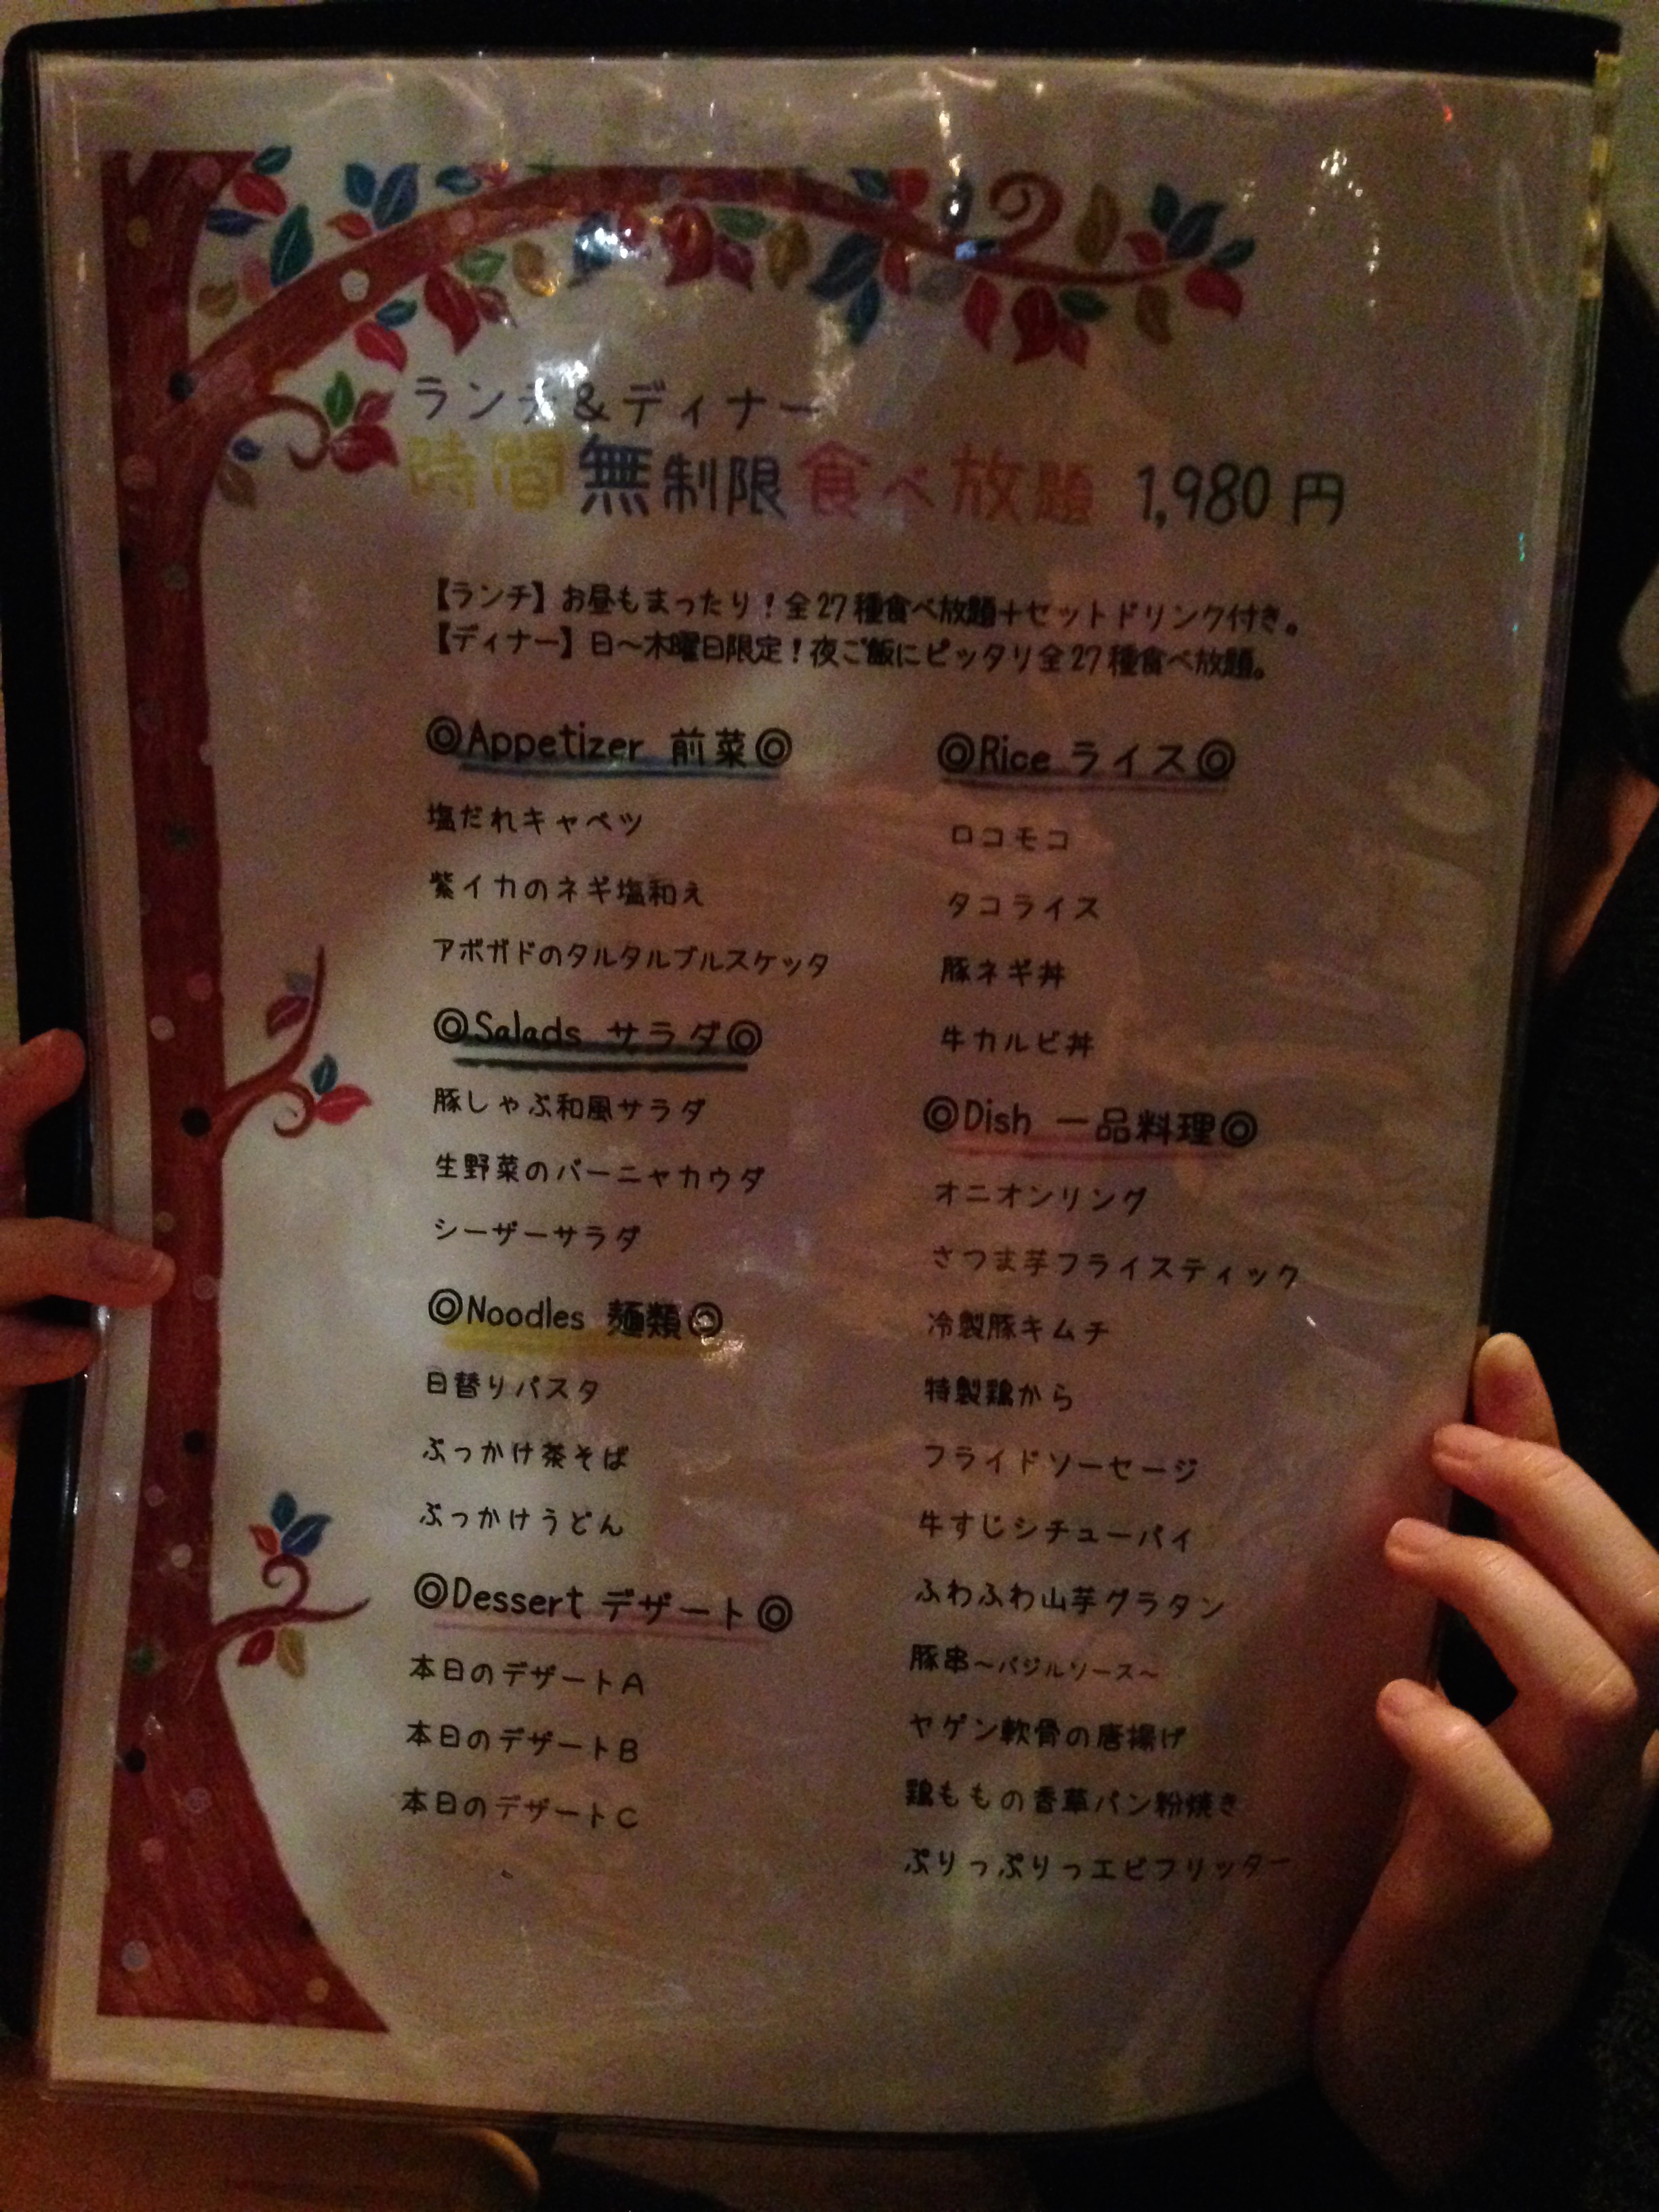 ランチ&ディナー
時間無制限食べ放題 1,980円
【ランチ】お昼もまったり！全27種食べ放題＋セットドリンク付き。
【ディナー】日～木曜日限定！夜ご飯にピッタリ全27種食べ放題。
◎Appetizer 前菜◎
塩だれキャベツ
紫イカのネギ塩和え
アボガドのタルタルブルスケッタ
◎Salads サラダ◎
豚しゃぶ和風サラダ
生野菜のバーニャカウダ
シーザーサラダ
◎Noodles 麺類◎
日替りパスタ
ぶっかけ茶そば
ぶっかけうどん
◎Dessert デザート◎
本日のデザートA
本日のデザートB
本日のデザートC
◎Rice ライス◎
ロコモコ
タコライス
豚ネギ丼
牛カルビ丼
◎Dish 一品料理◎
オニオンリング
さつま芋フライスティック
冷製豚キムチ
特製鶏から
フライドソーセージ
牛すじシチューパイ
ふわふわ山芋グラタン
豚串～バジルソース～
ヤゲン軟骨の唐揚げ
鶏ももの香草パン粉焼き
ぷりっぷりっエビフリッター